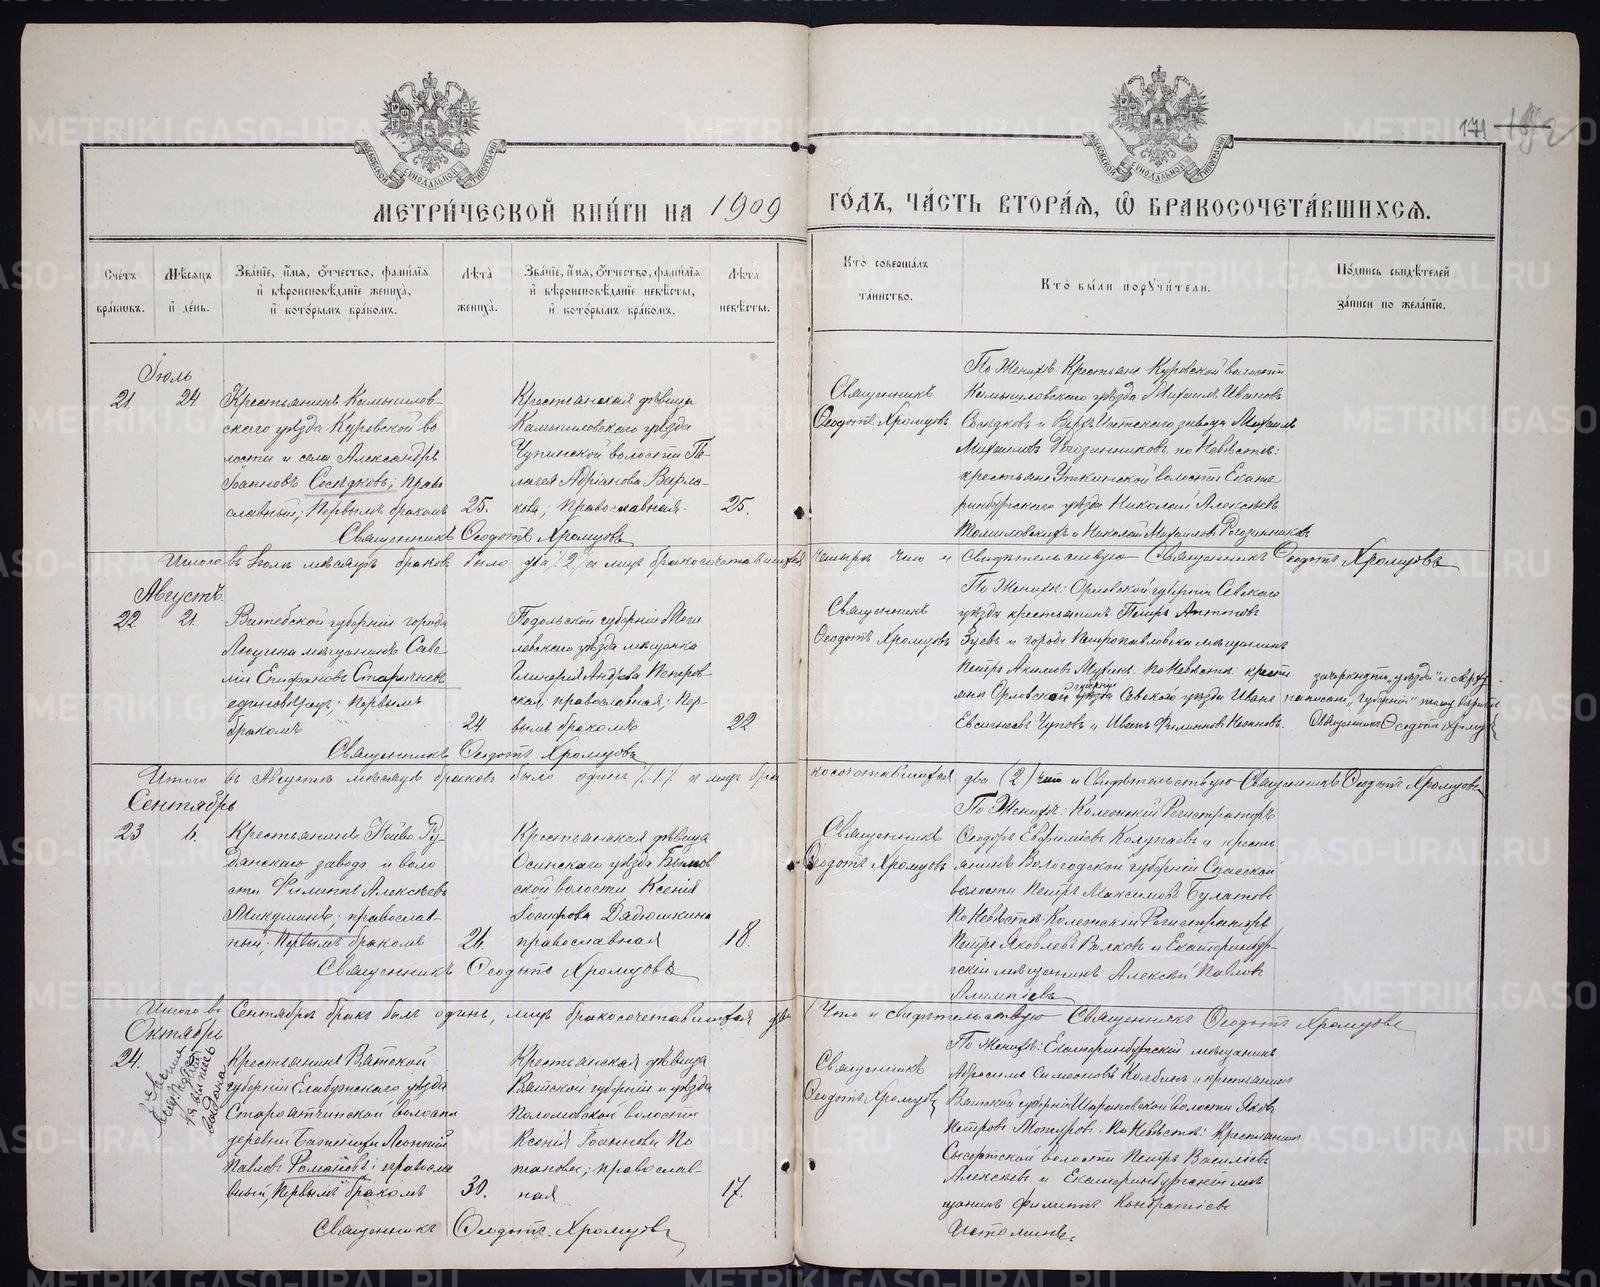 171
МОСКОВСКОЙ СѴНОДАЛЬНОЙ ТИПОГРАФІИ
МОСКОВСКОЙ СѴНОДАЛЬНОЙ ТИПОГРАФІИ
МЕТРИ́ЧЕСКОЙ КНИ́ГИ НА 1909 ГО́ДЪ, ЧА́СТЬ ВТОРА́Ѧ, Ѡ҆ БРАКОСОЧЕТА́ВШИХСѦ.
Сче́тъ бра́кѡвъ.
Мѣ́сѧцъ и҆ де́нь.
Зва́нїе, и҆́мѧ, ѻ҆́тчество, фами́лїѧ и҆ вѣроисповѣ́данїе жениха̀, и҆ кото́рымъ бра́комъ.
Лѣ́та жениха̀.
Зва́нїе, и҆́мѧ, ѻ҆́тчество, фами́лїѧ и҆ вѣроисповѣ́данїе невѣ́сты, и҆ кото́рымъ бра́комъ.
Лѣ́та невѣ́сты.
Кто̀ соверша́лъ та́инство.
Кто̀ бы́ли порꙋчи́тели.
По́дпись свидѣ́телей за́писи по жела́нїю.
Іюль
21. 24
Крестьянинъ Камышлов-
скаго уѣзда Куровской во
лости и села Александръ
Іоанновъ Сосѣдковъ; право
славный; первымъ бракомъ
25.
Крестьянская дѣвица
Камышловскаго уѣзда
Чупинской волости Пе-
лагея Адріанова Варла-
кова; православная.
25.
Священникъ Ѳеодотъ Хромцовъ
Священникъ
Ѳеодотъ Хромцовъ
По Женихѣ: Крестьяне Куровской волости
Камышловскаго уѣзда Михаилъ Ивановъ
Сосѣдковъ и Верхъ-Исетскаго завода Михаилъ
Михаиловъ Рогозинниковъ по Невѣстѣ:
крестьяне Уткинской волости Екате
ринбургскаго уѣзда Николай Алексѣевъ
Томиловскихъ и Николай Михаиловъ Рогозинниковъ
Итого въ Іюлѣ мѣсяцѣ браковъ было два (2) а лицъ бракосочетавшихся четыре что и свидѣтельствую Священникъ Ѳеодотъ Хромцовъ
Августъ
22. 21.
Витебской губерніи города
Люцина мѣщанинъ Саве-
лій Епифановъ Старичневъ
единовѣрецъ; первымъ
бракомъ
24.
Подольской губерніи Моги
левскаго уѣзда мѣщанка
Гликерія Андреева Петров-
ская, православная; пер-
вымъ бракомъ
22
Священникъ Ѳеодотъ Хромцовъ
Священникъ
Ѳеодотъ Хромцовъ
По Женихѣ: Орловской губерніи Севскаго
уѣзда крестьянинъ Петръ Антиповъ
Зуевъ и города Петропавловска мѣщанинъ
Петръ Акимовъ Мухинъ. По Невѣстѣ: кресть
яне Орловской губерніи уѣзда Севскаго уѣзда Иванъ
Евсигнеевъ Чуповъ и Иванъ Филипповъ
зачеркнуто „уѣзда“ и сверху
написано „губерніи“ тому вѣрить
Священникъ Ѳеодотъ Хромцовъ
Итого въ Августѣ мѣсяцѣ браковъ было одинъ (1) а лицъ бракосочетавшихся два (2) что и свидѣтельствую Священникъ Ѳеодотъ Хромцовъ
Сентябрь
23 6.
Крестьянинъ Нейво Ру-
дянскаго завода и воло
сти Филиппъ Алексѣевъ
Микушинъ; православ-
ный; первымъ бракомъ
26.
Крестьянская дѣвица
Осинскаго уѣзда Бымов
ской волости Ксенія
Іосифова Дядюшкина
православная
18.
Священникъ Ѳеодотъ Хромцовъ
Священникъ
Ѳеодотъ Хромцовъ
По Женихѣ: Колежскій Регистраторъ
Ѳеодоръ Евфиміевъ Колупаевъ и кресть
янинъ Вологодской губерніи Спасской
волости Петръ Максимовъ Булатовъ
По Невѣстѣ: Колежскій Регистраторъ
Петръ Яковлевъ Волковъ и Екатеринбур-
гскій мѣщанинъ Алексѣй Павловъ
Алимпіевъ
Итого въ Сентябрѣ бракъ былъ одинъ, лицъ бракосочетавшихся два Что и свидѣтельствую Священникъ Ѳеодотъ Хромцовъ
Октябрь
24.
Крестьянинъ Вятской
губерніи Елабужскаго уѣзда
Староятчинской волости
деревни Баженицы Леонтій
Павловъ Романовъ; правосла
вный, первымъ бракомъ
30.
Крестьянская дѣвица
Вятской губерніи и уѣзда
Поломовской волости
Ксенія Іоаннова По
танова; православ-
ная
17.
Священникъ Ѳеодотъ Хромцовъ
Священникъ
Ѳеодотъ Хромцовъ
По Женихѣ: Екатеринбургскій мѣщанинъ
Герасимъ Симеоновъ Колбинъ и крестьянинъ
Вятской губерніи Шарановской волости Яковъ
Петровъ Мошуровъ. По Невѣстѣ: Крестьянинъ
Сысертской волости Петръ Василіевъ
Алексѣевъ и Екатеринбургскій мѣ
щанинъ Филиппъ Кондратіевъ
Истоминъ.
METRIKI.GASO-URAL.RU